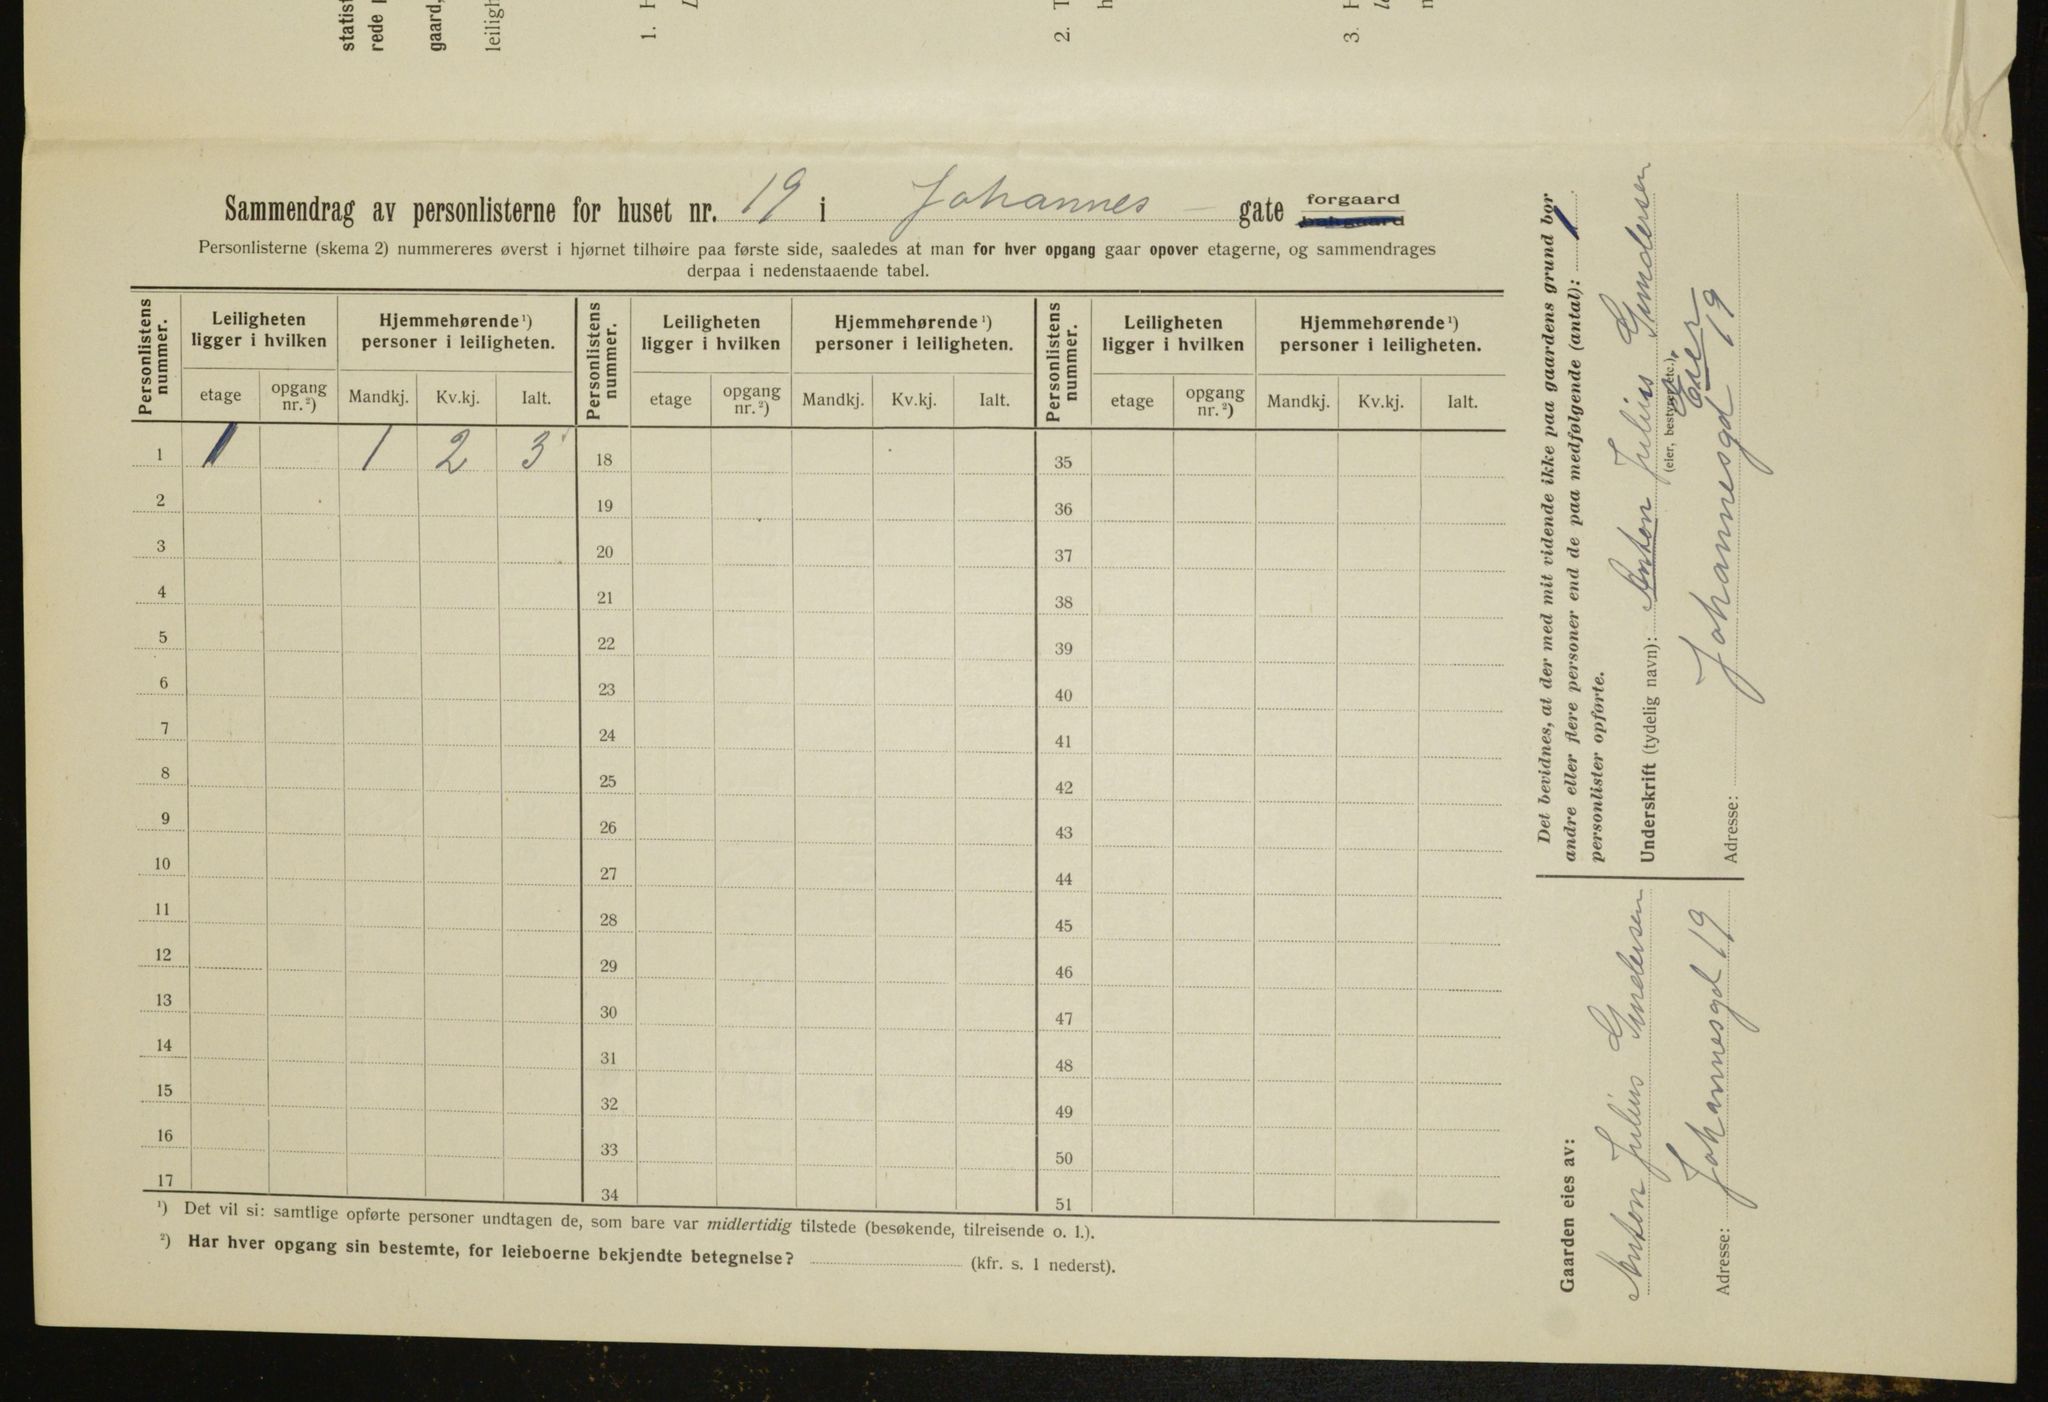 statist
rede
gaard,
leiligh
1. H
2. T
h
3. H
Sammendrag av personlisterne for huset nr. 19 i Johannes gate forgaard
bakgaard
Personlisterne (skema 2) nummereres øverst i hjørnet tilhøire paa første side, saaledes at man for hver opgang gaar opover etagerne, og sammendrages
derpaa i nedenstaaende tabel.
Personlistens nummer. Leiligheten ligger i hvilken Hjemmehørende ¹) personer i leiligheten. Personlistens nummer. Leiligheten ligger i hvilken Hjemmehørende ¹) personer i leiligheten. Personlistens nummer. Leiligheten ligger i hvilken Hjemmehørende ¹) personer i leiligheten.
etage opgang nr. ²) Mandkj. Kv.kj. Ialt. etage opgang nr. ²) Mandkj. Kv.kj. Ialt. etage opgang nr. ²) Mandkj. Kv.kj. Ialt.
1 1 1 2 3 18 35
2 19 36
3 20 37
4 21 38
5 22 39
6 23 40
7 24 41
8 25 42
9 26 43
10 27 44
11 28 45
12 29 46
13 30 47
14 31 48
15 32 49
16 33 50
17 34 51
¹) Det vil si: samtlige opførte personer undtagen de, som bare var midlertidig tilstede (besøkende, tilreisende o. l.).
²) Har hver opgang sin bestemte, for leieboerne bekjendte betegnelse? (kfr. s. 1 nederst).
Det bevidnes, at der med mit vidende ikke paa gaardens grund bor
andre eller flere personer end de paa medfølgende (antal): 1
personlister opførte.
Underskrift (tydelig navn): Anton Julius Gundersen
(eier, bestyrer etc.)
Eier
Adresse: Johannesgd 19
Gaarden eies av:
Anton Julius Gundersen
Adresse: Johannesgd 19